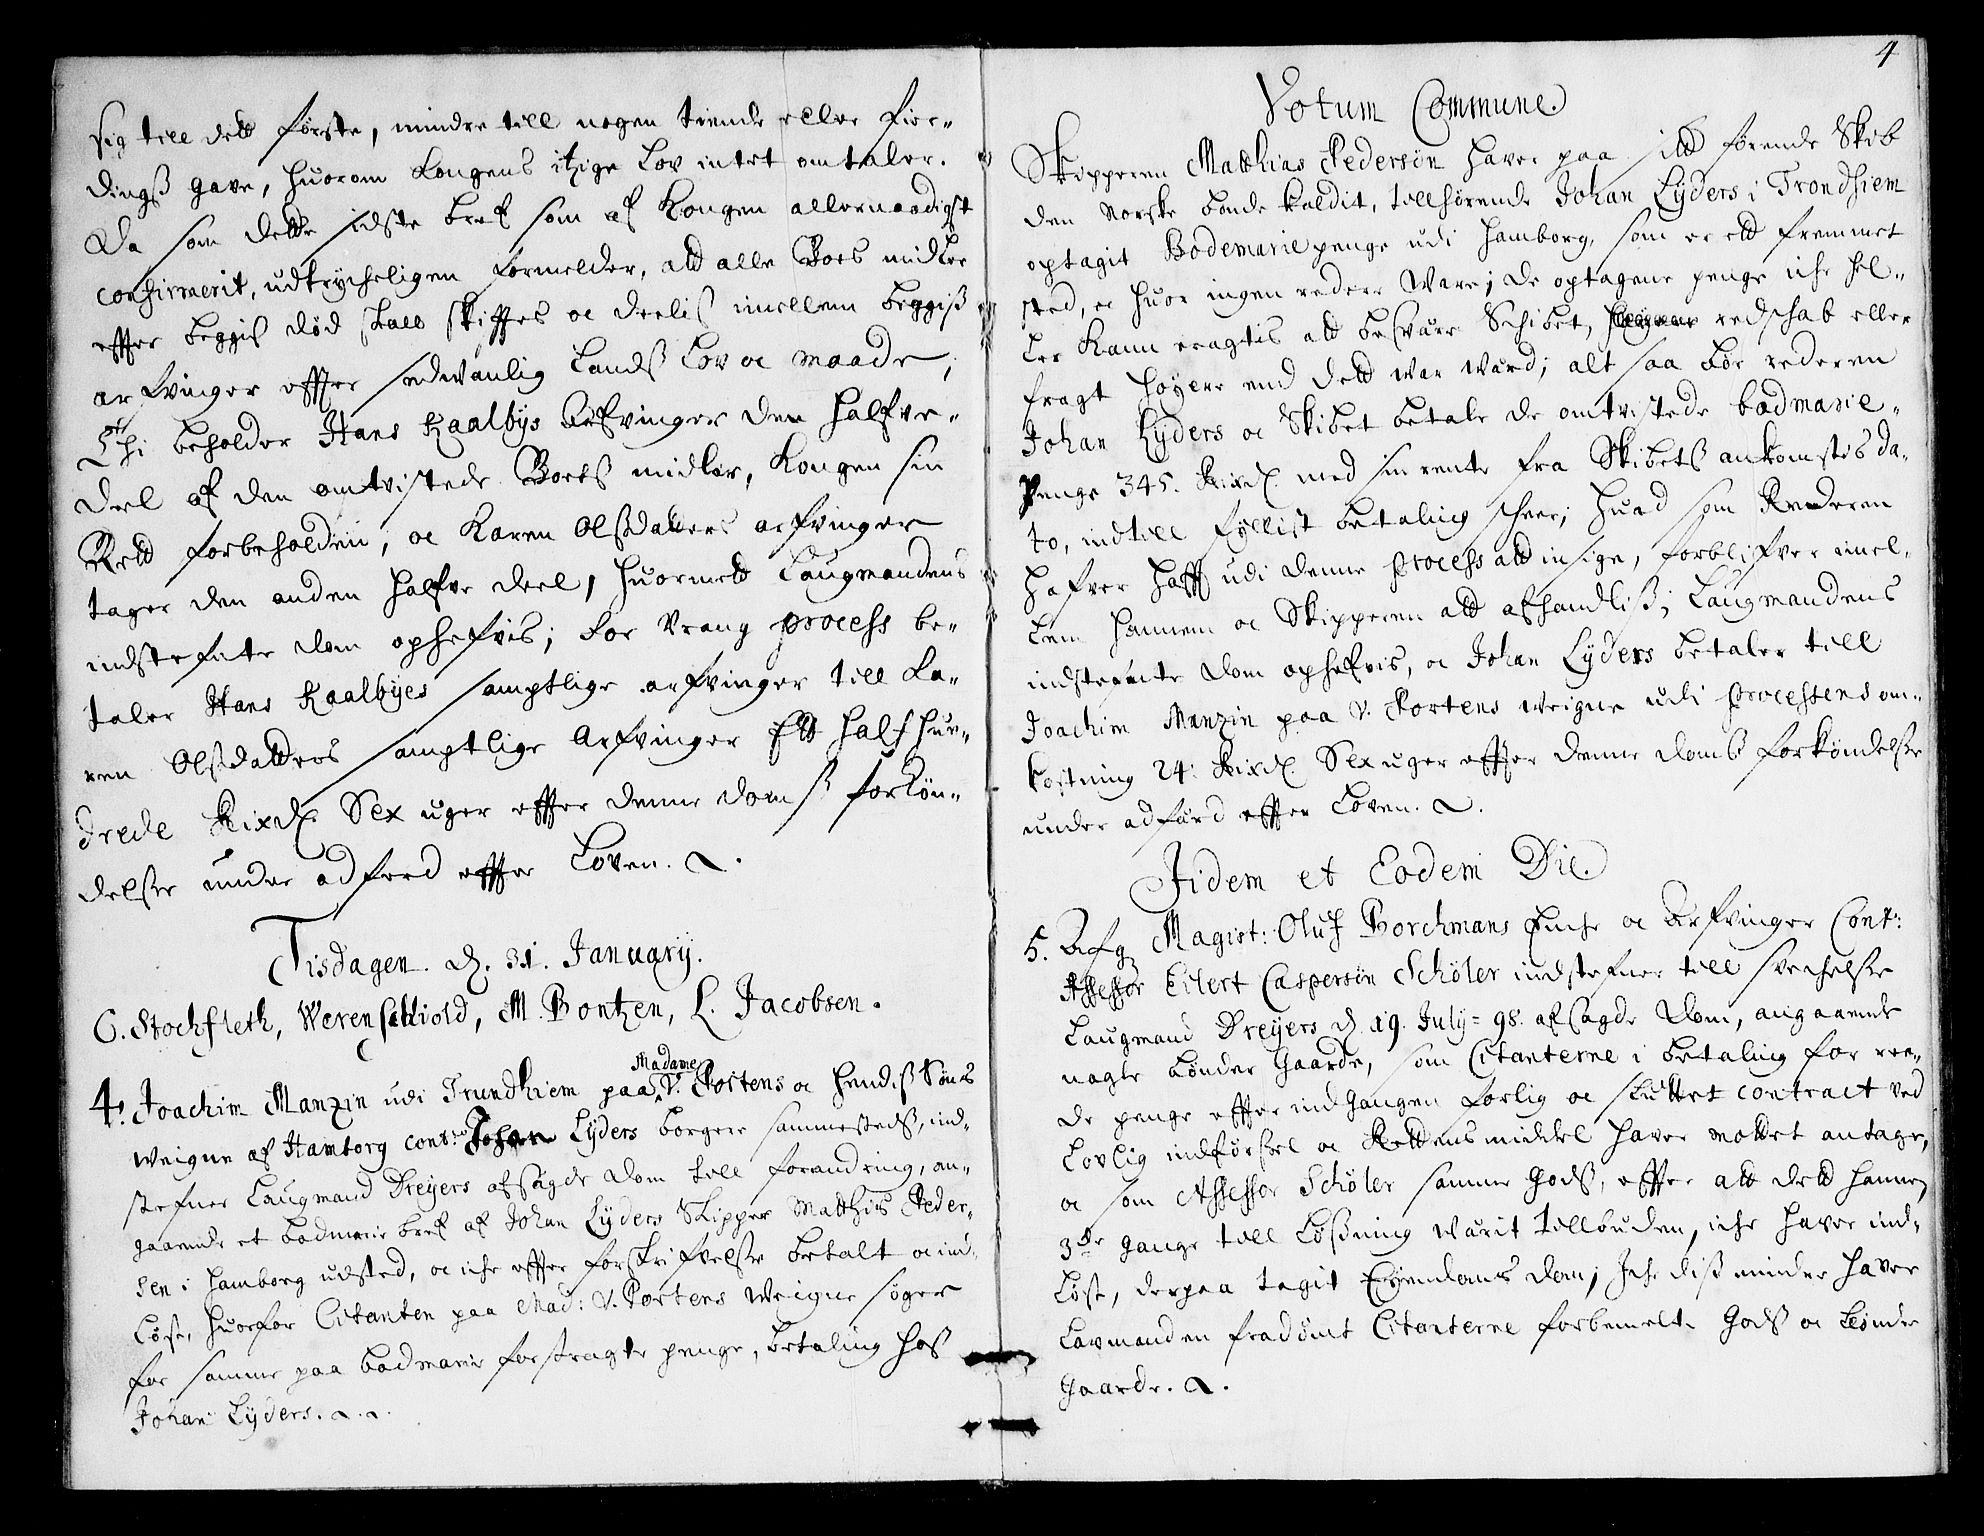 sig till dett første, mindre till nogen tiende eller fier-
dings gave, huorom Kongens itzige Lov intet omtaler.
Da som dette sidste bref som af Kongen allernaadigst
confirmerit, udtrycheligen formelder, att alle Boes midler
effter beggis død skall skifftes oc deelis imellem beggiss
arfvinger effter sedvanlig Landss Lov oc maade,
Thi beholder Hans Kaalbys Arfvinger den halfve-
deel af den omtvistede Boets midler, Kongen sin
Rett forbeholden, oc Karen Olssdatters arfvinger
tager den anden halfve deel, huormed Laugmandens
indstefnte dom ophefvis; For Vrang process be-
taler Hans Kaalbyes samptlige arfvinger till Ka-
ren Olssdatters samptlige Arfvinger Ett half hun-
drede Rixd. Sex uger effter denne domss forkøn-
delsse under adferd effter Loven.
Tisdagen. d. 31. January.
C. Stochfleth, Werenschiold, M. Bontzen, L. Jacobsen.
4. Joachim Manzin udi Trundhiem paa Madame V. Portens oc hendiss Søns
weigne af Hamborg cont: Johan Lÿders borgere sammestedss, ind-
stefner Laugmand Dreyers afsagde dom till forandring, an-
gaaende et badmerie bref af Johan Lÿders Skipper Matthis Peder-
sen i Hamborg udsted, oc iche effter forskrifvelsse betalt oc ind-
løst, huorfor Citanten paa Mad: V. Portens weigne søger
for samme paa badmarie forstragte penge, betaling hoss
Johan Lÿders.
4
Votum Commune.
Skipperen Matthias Pedersøn haver paa sitt førende Skib
den Norske bonde kaldit, tillhørende Johan Lÿders i Trondhiem
optagit Bodemarie penge udi Hamborg, som er ett fremmet
sted, oc huor ingen redere ware; de optagene penge iche hel-
ler kann eragtis att besvære Schibet, redschab eller
fragt høyere end dett war wærd; alt saa bør rederen
Johan Lÿders oc Skibet betale de omtvistede badmarie-
Penge 345. Rixd. med sin rente fra Skibets ankomstes da-
to, indtill fyllist betaling scheer; huad som Rederen
hafver hafft udi denne process att insige, forblifver imel-
lem hannem oc Skipperen att afhandliss; Laugmandens
indstefnte dom ophefvis, oc Johan Lÿders betaler till
Joachim Manzin paa V. Portens weigne udi processens om-
kostning 24. Rixd. Sex uger effter denne domss forkøndelsse
under adfærd effter Loven.
Jidem et Eodem Die.
5. Afg. Magist: Oluf Borchmans Enche oc Arfvinger Cont:
Assessor Eilert Caspersøn Schöler indstefner till svechelsse
Laugmand Dreyers d. 19. July = 98. afsagde dom, angaaende
nogle bønder Gaarde, som Citanterne i betaling for ree-
de penge effter indgangen forlig oc sluttet contract ved
Lovlig indførsel oc Rettens middel haver mottet antage,
oc som Assessor Schöler samme Godss, effter att dett hannem
3de gange till løssning warit tillbuden, iche haver ind-
løst, derpaa tagit Eyendoms dom; Iche diss minder haver
Lavmanden fradømt Citanterne forbemelte Godss oc bønder
Gaarde.